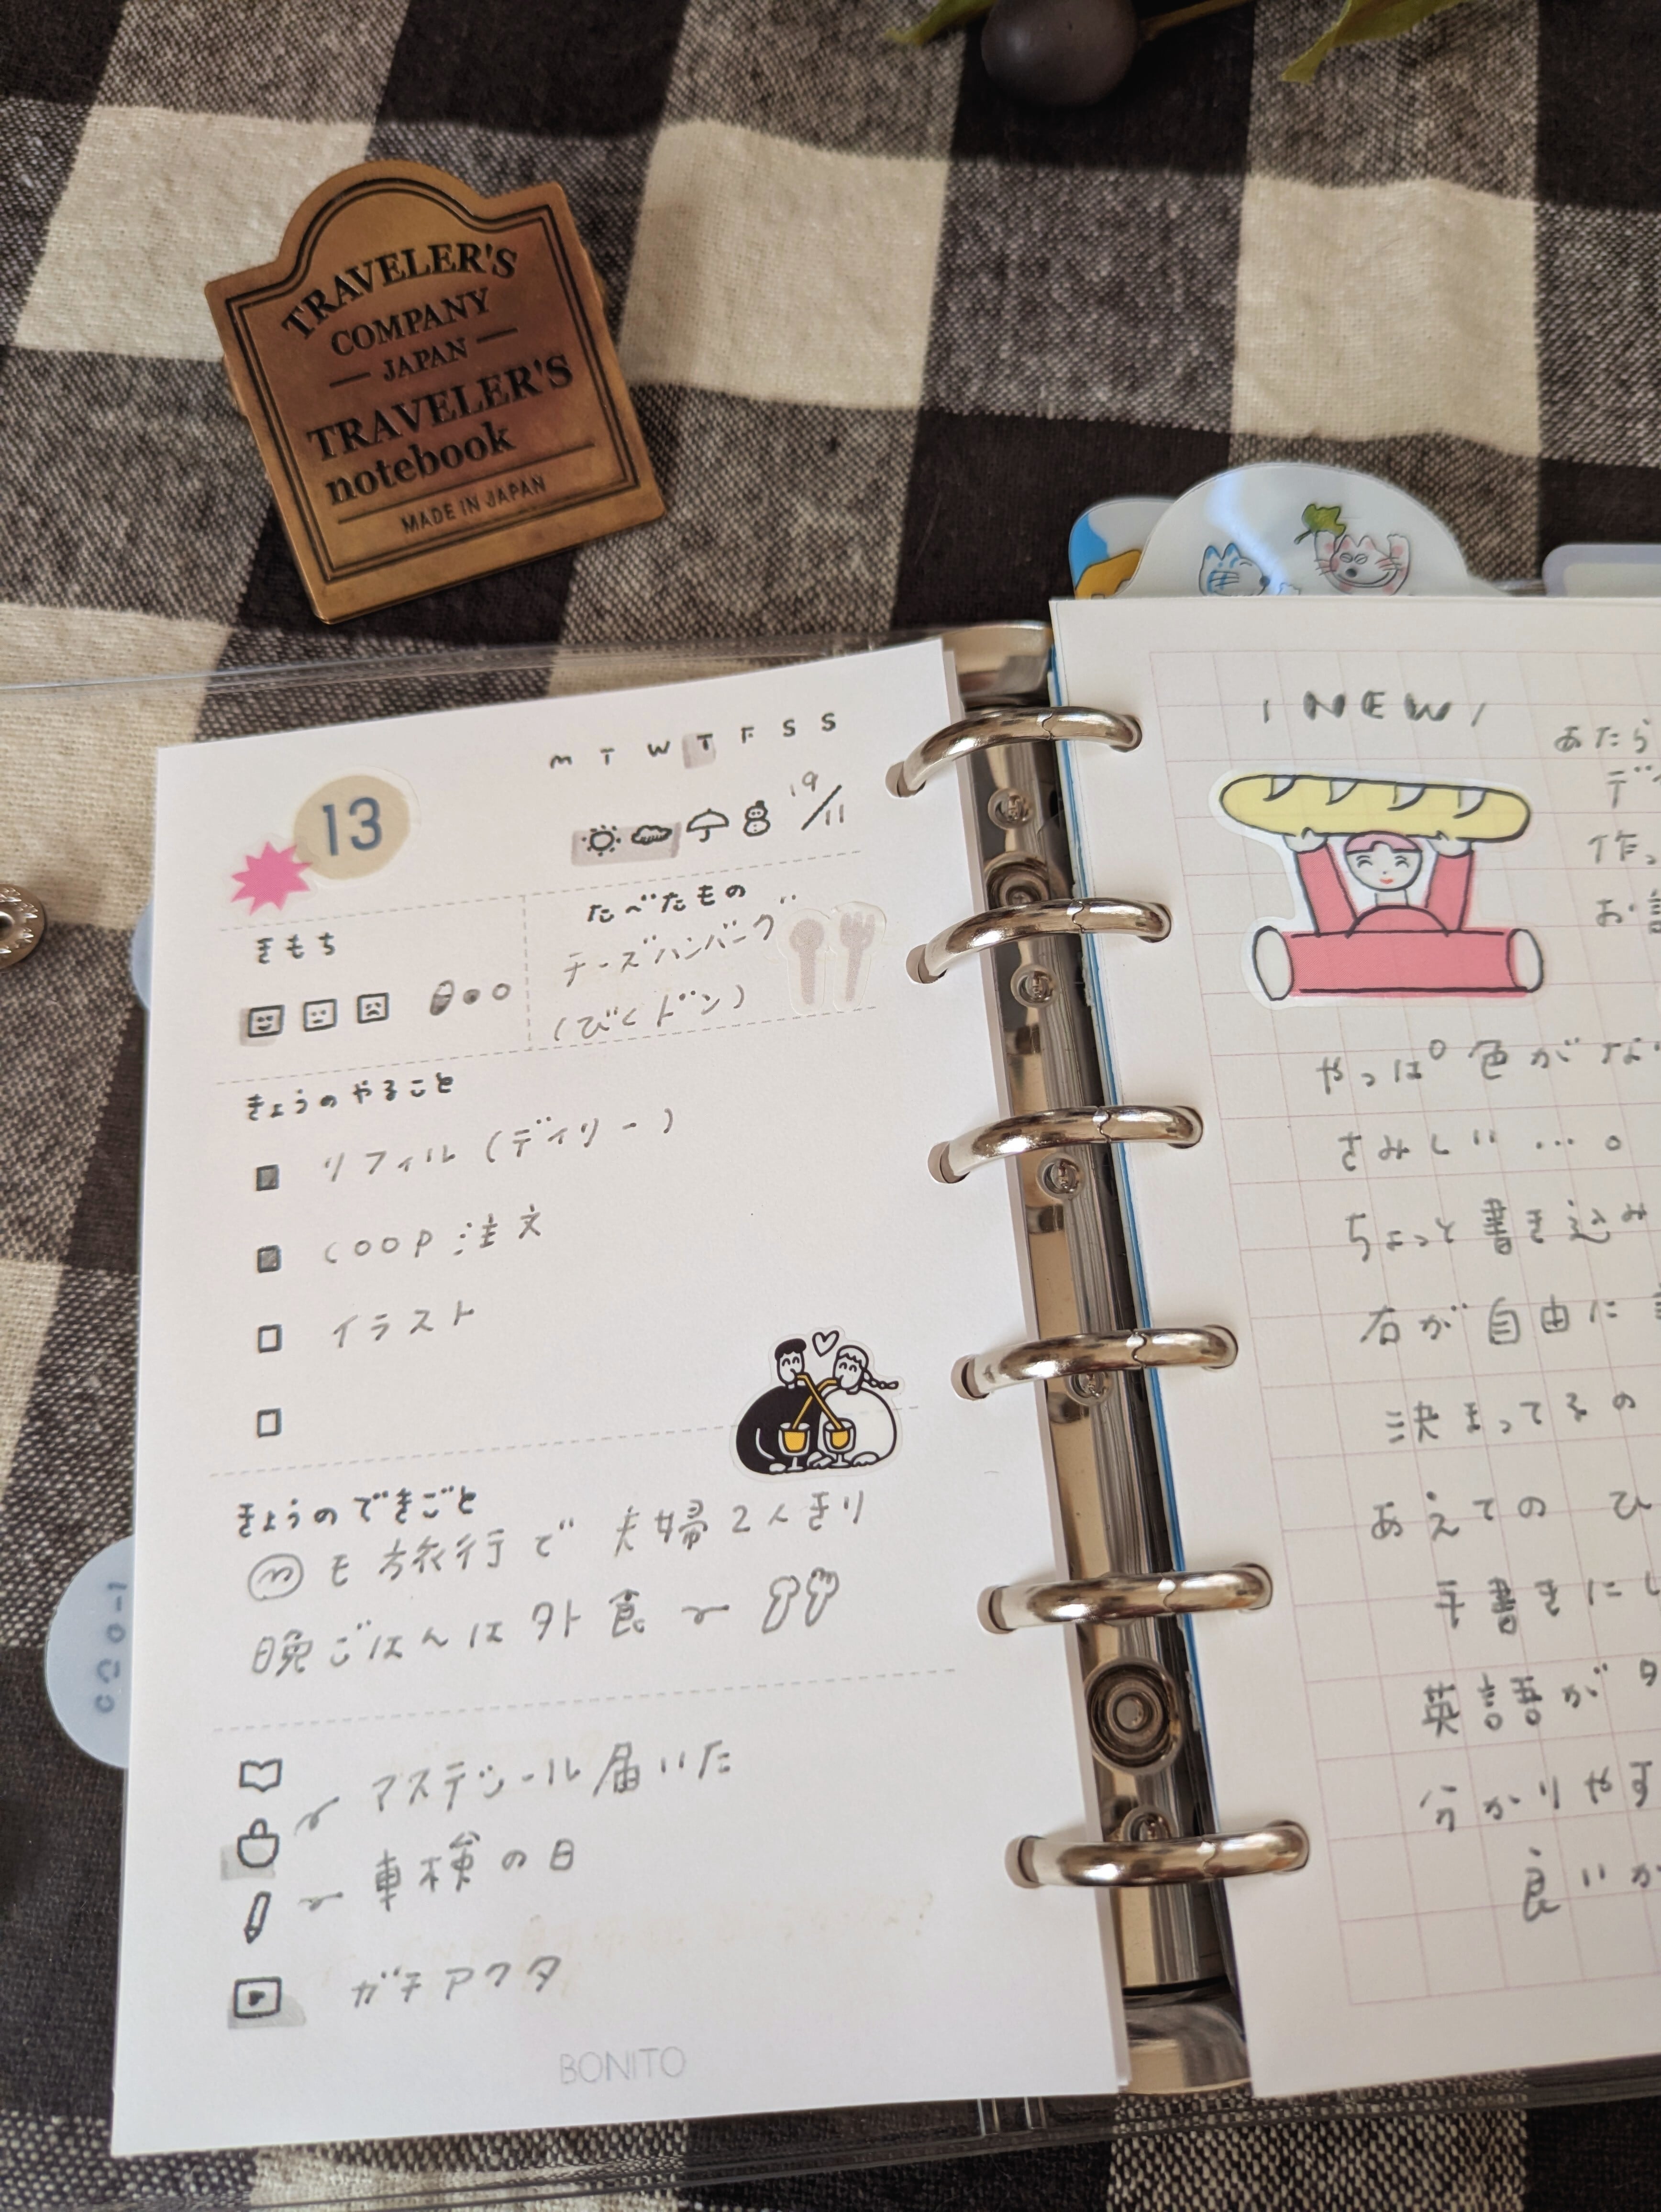 TRAVELER'S
COMPANY
JAPAN
TRAVELER'S
notebook
MADE IN JAPAN
M T W T F S S
13
19/11
きもち
たべたもの
チーズハンバーグ
(びくドン)
きょうのやること
リフィル(デイリー)
COOP 注文
イラスト
きょうのできごと
m も旅行で 夫婦2人きり
晩ごはんは外食〜
マステツール届いた
車検の日
ガチアクタ
BONITO
NEW
あたら
デ
作っ
お
やっぱ色がな
さみしい…。
ちょっと書き込み
右が自由に
決まってるの
あえての ひ
手書きにし
英語が
分かりやす
良いか